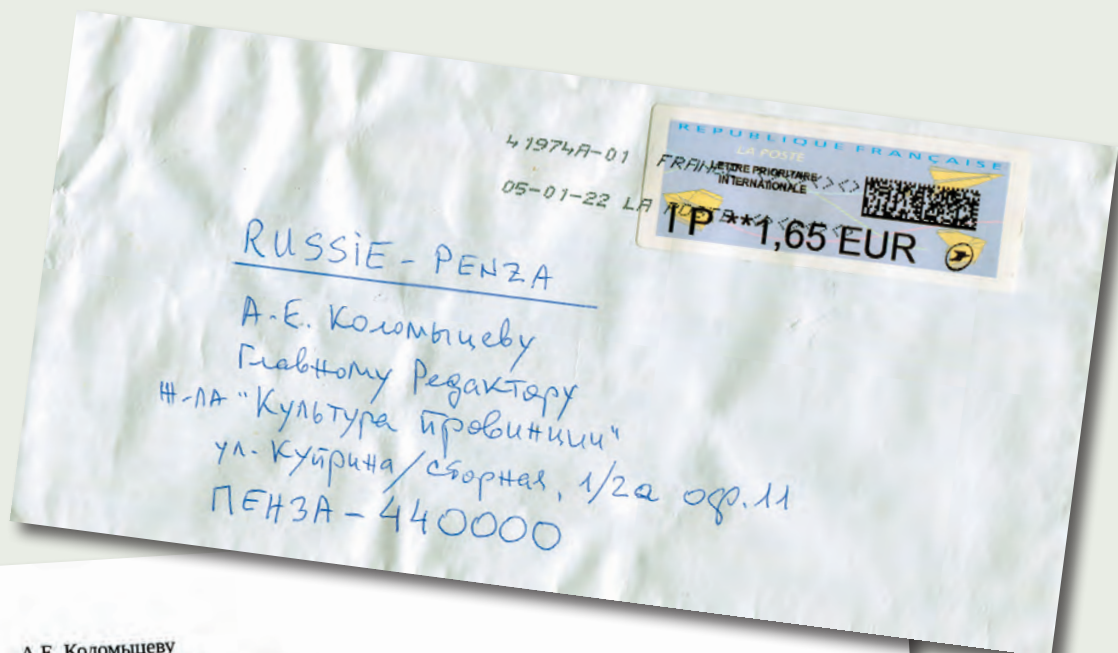 41974A-01 FRANCE
05-01-22 LA POSTE
REPUBLIQUE FRANÇAISE
LA POSTE
LETTRE PRIORITAIRE
INTERNATIONALE
IP **1,65 EUR
RUSSIE - PENZA
А.Е. Коломыцеву
Главному Редактору
Ж-ЛА "Культура Провинции"
ул. Куприна/сборная, 1/2а оф. 11
ПЕНЗА - 440000
А.Е. Коломыцеву